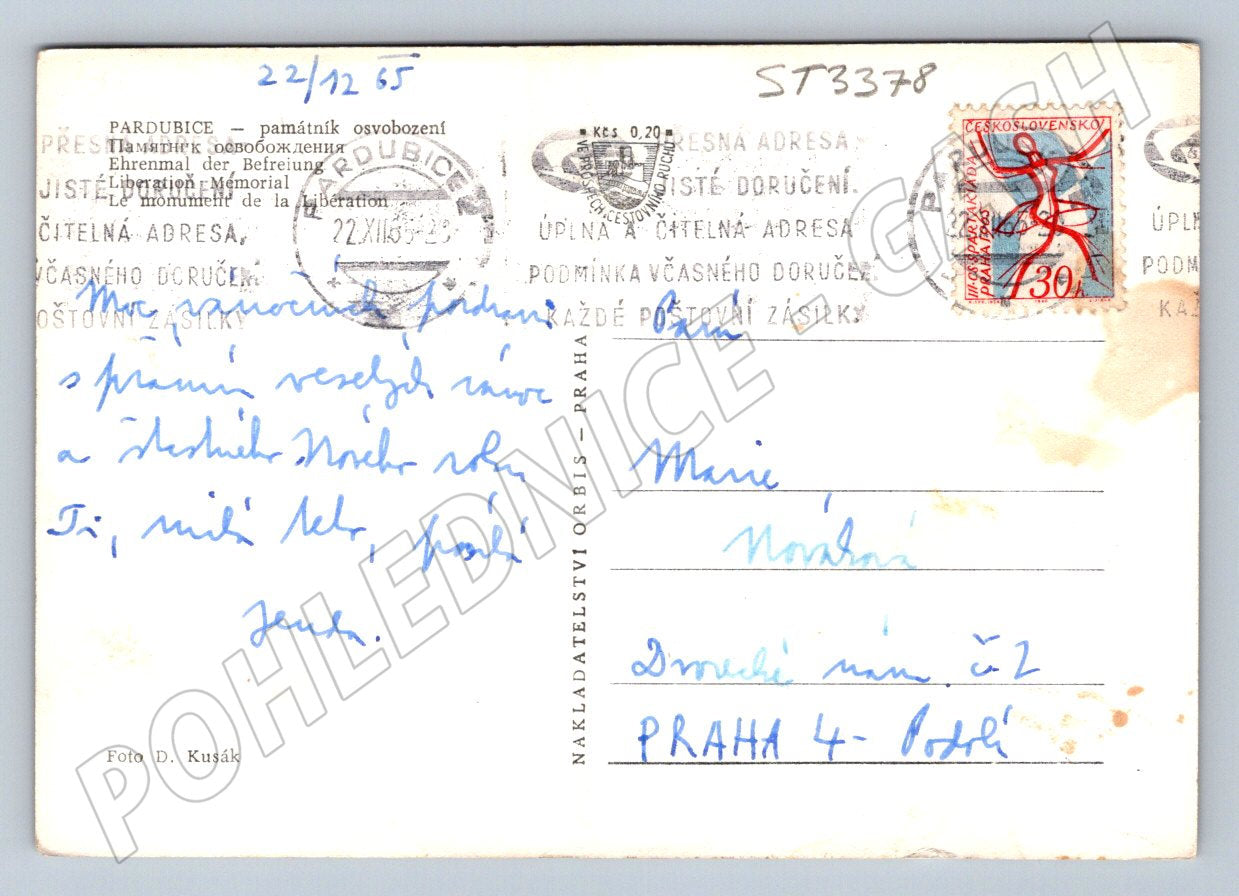 22/12 65
ST3378
PARDUBICE — památník osvobození
Памятник освобождения
Ehrenmal der Befreiung
Liberation Memorial
Le monument de la Libération
PŘESNÁ ADRESA
JISTÉ DORUČENÍ
ČITELNÁ ADRESA,
VČASNÉHO DORUČENÍ
POŠTOVNÍ ZÁSILKY
PARDUBICE 2
22.XII.65-23
Kčs 0,20
VE PROSPĚCH CESTOVNÍHO RUCHU
PŘESNÁ ADRESA -
JISTÉ DORUČENÍ.
ÚPLNÁ A ČITELNÁ ADRESA
PODMÍNKA VČASNÉHO DORUČENÍ
KAŽDÉ POŠTOVNÍ ZÁSILKY
ČESKOSLOVENSKO
III. CELOSTÁTNÍ SPARTAKIÁDA
PRAHA 1965
30h
ÚPL
PODM
KAŽ
Moc vánočních pozdravů
s přáním veselých vánoc
a šťastného Nového roku
Ti, milá teto, posílá
Jenda.
Foto D. Kusák
NAKLADATELSTVÍ ORBIS — PRAHA
Paní
Marie
Nováková
Dvorecké nám. č. 2
PRAHA 4 - Podolí
POHLEDNICE - GASH